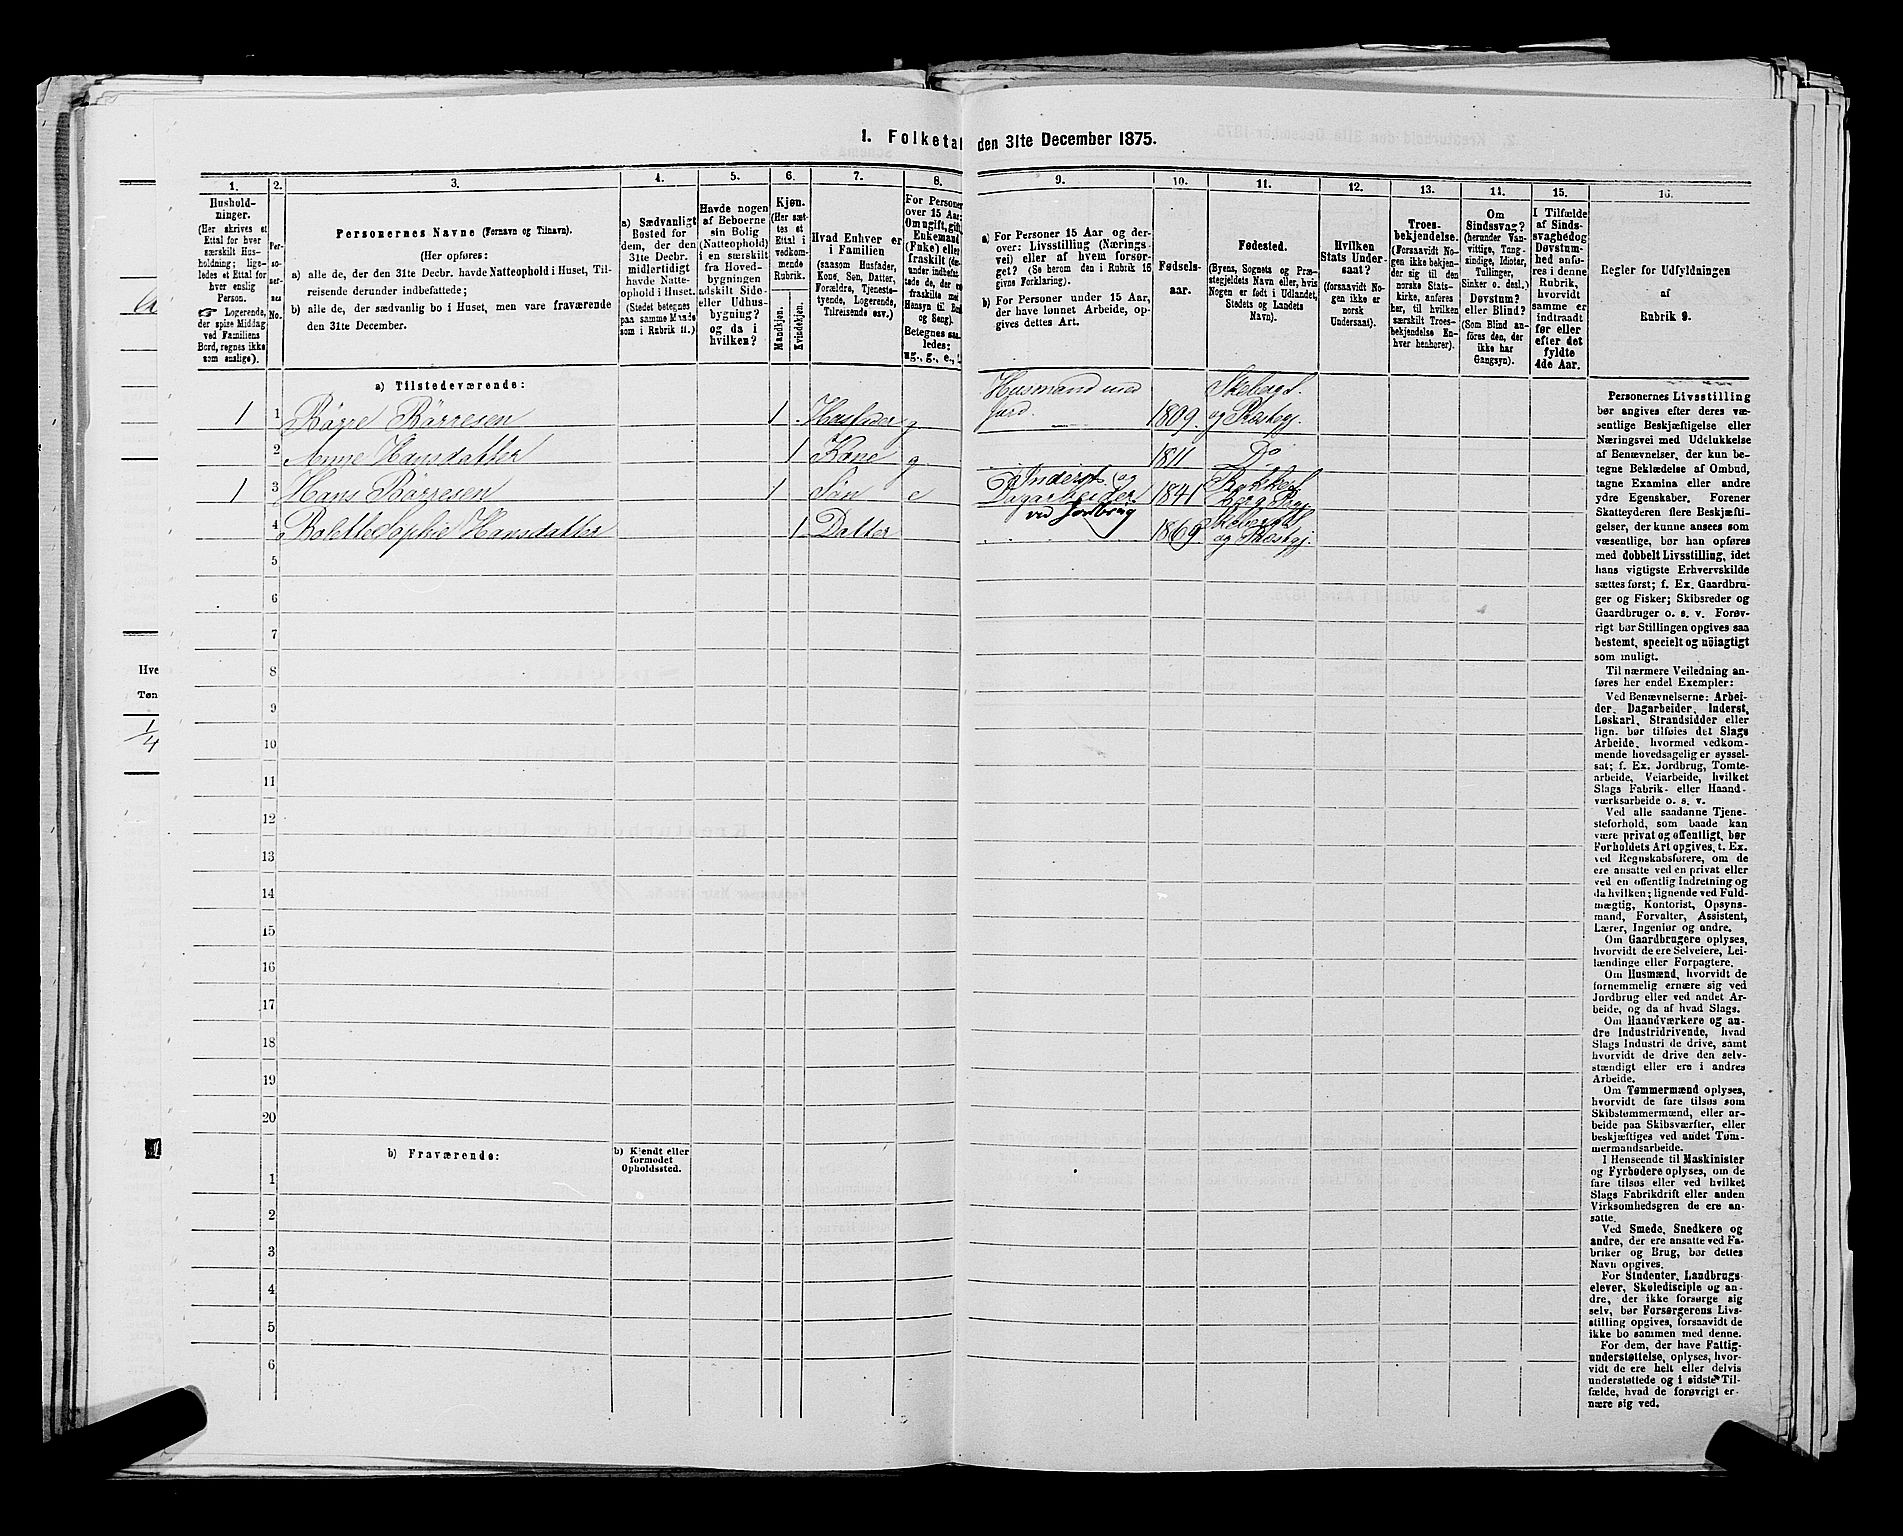 1. Folketal den 31te December 1875.
1.
2.
3.
4.
5.
6.
7.
8.
9.
10.
11.
12.
13.
14.
15.
16.
Hushold-
ninger.
(Her skrives et
Ettal for hver
særskilt Hus-
holdning; lige-
ledes et Ettal for
hver enslig
Person.
☞ Logerende,
der spise Middag
ved Familiens
Bord, regnes ikke
som enslige).
Per-
so-
ner-
nes
No.
Personernes Navne (Fornavn og Tilnavn).
(Her opføres:
a) alle de, der den 31te Decbr. havde Natteophold i Huset, Til-
reisende derunder indbefattede;
b) alle de, der sædvanlig bo i Huset, men vare fraværende
den 31te December.
a) Sædvanligt
Bosted for
dem, der den
31te Decbr.
midlertidigt
havde Natte-
ophold i Huset.
(Stedet betegnes
paa samme Maade
som i Rubrik 11.)
Havde nogen
af Beboerne
sin Bolig
(Natteophold)
i en særskilt
fra Hoved-
bygningen
adskilt Side-
eller Udhus-
bygning?
og da i
hvilken?
Kjøn.
(Her sæt-
tes et
Ettal i
vedkom-
mende
Rubrik.
Mandkjøn.
Kvindekjøn.
Hvad Enhver er
i Familien
(saasom Husfader,
Kone, Søn, Datter,
Forældre, Tjeneste-
tyende, Logerende,
Tilreisende osv.)
For Personer
over 15 Aar:
Om ugift, gift,
Enkemand
(Enke) eller
fraskilt
Betegnes saa-
ledes:
ug., g., e.,
a) For Personer 15 Aar og der-
over: Livsstilling (Nærings-
vei) eller af hvem forsør-
get? (Se herom den i Rubrik 16
givne Forklaring).
b) For Personer under 15 Aar,
der have lønnet Arbeide, op-
gives dettes Art.
Fødsels-
aar.
Fødested.
(Byens, Sognets og Præ-
stegjeldets Navn eller, hvis
Nogen er født i Udlandet,
Stedets og Landets
Navn).
Hvilken
Stats Under-
saat?
(forsaavidt No-
gen ikke er
norsk
Undersaat).
Troes-
bekjendelse.
(Forsaavidt No-
gen ikke bekjen-
der sig til den
norske Stats-
kirke, anføres
her, til hvilken
særskilt Troes-
bekjendelse En-
hver henhører).
Om
Sindssvag?
(herunder Van-
vittige, Tung-
sindige, Idioter,
Tullinger,
Sinker o. desl.)
Døvstum?
eller Blind?
(Som Blind an-
føres den, der
ikke har
Gangsyn).
I Tilfælde
af Sinds-
svaghed og
Døvstum-
hed anfø-
res i denne
Rubrik,
hvorvidt
samme er
indtraadt
før eller
efter det
fyldte
4de Aar.
Regler for Udfyldningen
af
Rubrik 9.
a) Tilstedeværende:
1 1 Børre Børresen 1 Husfader g Husmand med Jord. 1809. og Ræskog
2 Anne Hansdatter 1 Kone g 1811 Do
1 3 Hans Børresen 1 Søn e Inderst og Dagarbeider ved Jordbrug 1841
4 Bolette Sophie Hansdatter 1 Datter 1869
5
6
7
8
9
10
11
12
13
14
15
16
17
18
19
20
b) Fraværende:
b) Kjendt eller
formodet
Opholdssted.
1
2
3
4
5
6
Personernes Livsstilling
bør angives efter deres væ-
sentlige Beskjæftigelse eller
Næringsvei med Udelukkelse
af Benævnelser, der kun be-
tegne Beklædelse af Ombud,
tagne Examina eller andre
ydre Egenskaber. Forener
Skatteyderen flere Beskjæfti-
gelser, der kunne ansees som
væsentlige, bør han opføres
med dobbelt Livsstilling, idet
hans vigtigste Erhvervskilde
sættes først; f. Ex. Gaardbru-
ger og Fisker; Skibsreder og
Gaardbruger o. s. v. Forøv-
rigt bør Stillingen opgives saa
bestemt, specielt og nöiagtigt
som muligt.
Til nærmere Veiledning an-
føres her endel Exempler:
Ved Benævnelserne: Arbei-
der, Dagarbeider, Inderst,
Løskarl, Strandsidder eller
lign. bør tilføies det Slags
Arbeide, hvormed vedkom-
mende hovedsagelig er syssel-
sat; f. Ex. Jordbrug, Tomte-
arbeide, Veiarbeide, hvilket
Slags Fabrik- eller Haand-
værksarbeide o. s. v.
Ved alle saadanne Tjene-
steforhold, som baade kan
være privat og offentligt, bør
Forholdets Art opgives, t. Ex.
ved Regnskabsførere, om de
ere ansatte ved en privat eller
ved en offentlig Indretning og
da hvilken; lignende ved Fuld-
mægtig, Kontorist, Opsyns-
mand, Forvalter, Assistent,
Lærer, Ingeniør og andre.
Om Gaardbrugere oplyses,
hvorvidt de ere Selveiere, Lei-
lændinge eller Forpagtere.
Om Husmænd, hvorvidt de
fornemmelig ernære sig ved
Jordbrug eller ved andet Ar-
beide, og da af hvad Slags.
Om Haandværkere og an-
dre Industridrivende, hvad
Slags Industri de drive, samt
hvorvidt de drive den selv-
stændigt eller ere i andres
Arbeide.
Om Tømmermænd oplyses,
hvorvidt de fare tilsøs som
Skibstømmermænd, eller ar-
beide paa Skibsværfter, eller
beskjæftiges ved andet Tøm-
mermandsarbeide.
I Henseende til Maskinister
og Fyrbødere oplyses, om de
fare tilsøs eller ved hvilket
Slags Fabrikdrift eller anden
Virksomhedsgren de ere an-
satte.
Ved Smede, Snedkere og
andre, der ere ansatte ved Fa-
briker og Brug, bør dettes
Navn opgives.
For Studenter, Landbrugs-
elever, Skoledisciple og an-
dre, der ikke forsørge sig
selv, bør Forsørgerens Livs-
stilling opgives, forsaavidt de
ikke bo sammen med denne.
For dem, der have Fattig-
understøttelse, oplyses, hvor-
vidt de ere helt eller delvis
understøttede og i sidste Til-
fælde, hvad de forøvrigt er-
nære sig ved.
Hve
Tøn
1/4